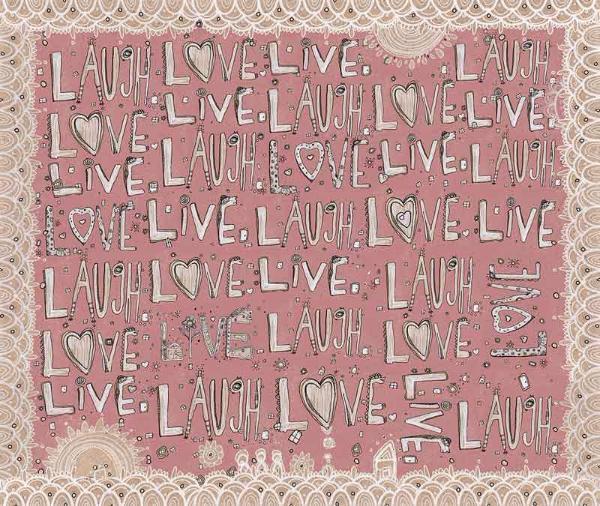 LAUGH LOVE. LIVE. LAUGH
LOVE. LIVE. LAUGH LOVE. LIVE.
LIVE LAUGH. LOVE LIVE. LAUGH.
LOVE LIVE. LAUGH. LOVE. LIVE
LAUGH. LOVE. LIVE. LAUGH. LOVE
LOVE. LIVE LAUGH. LOVE.
LIVE. LAUGH. LOVE. LIVE LAUGH.